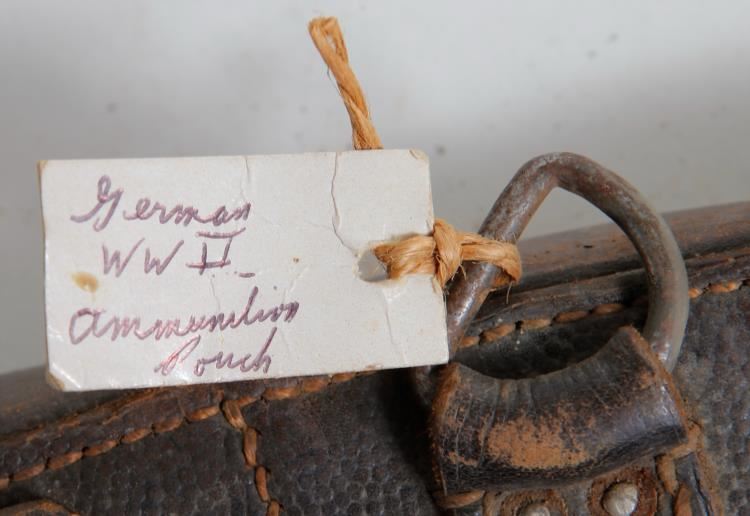 German
WW II
Ammunition
Pouch